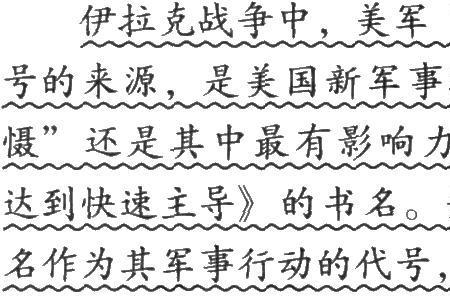 伊拉克战争中，美军
号的来源，是美国新军事
慑”还是其中最有影响力
达到快速主导》的书名。
名作为其军事行动的代号，